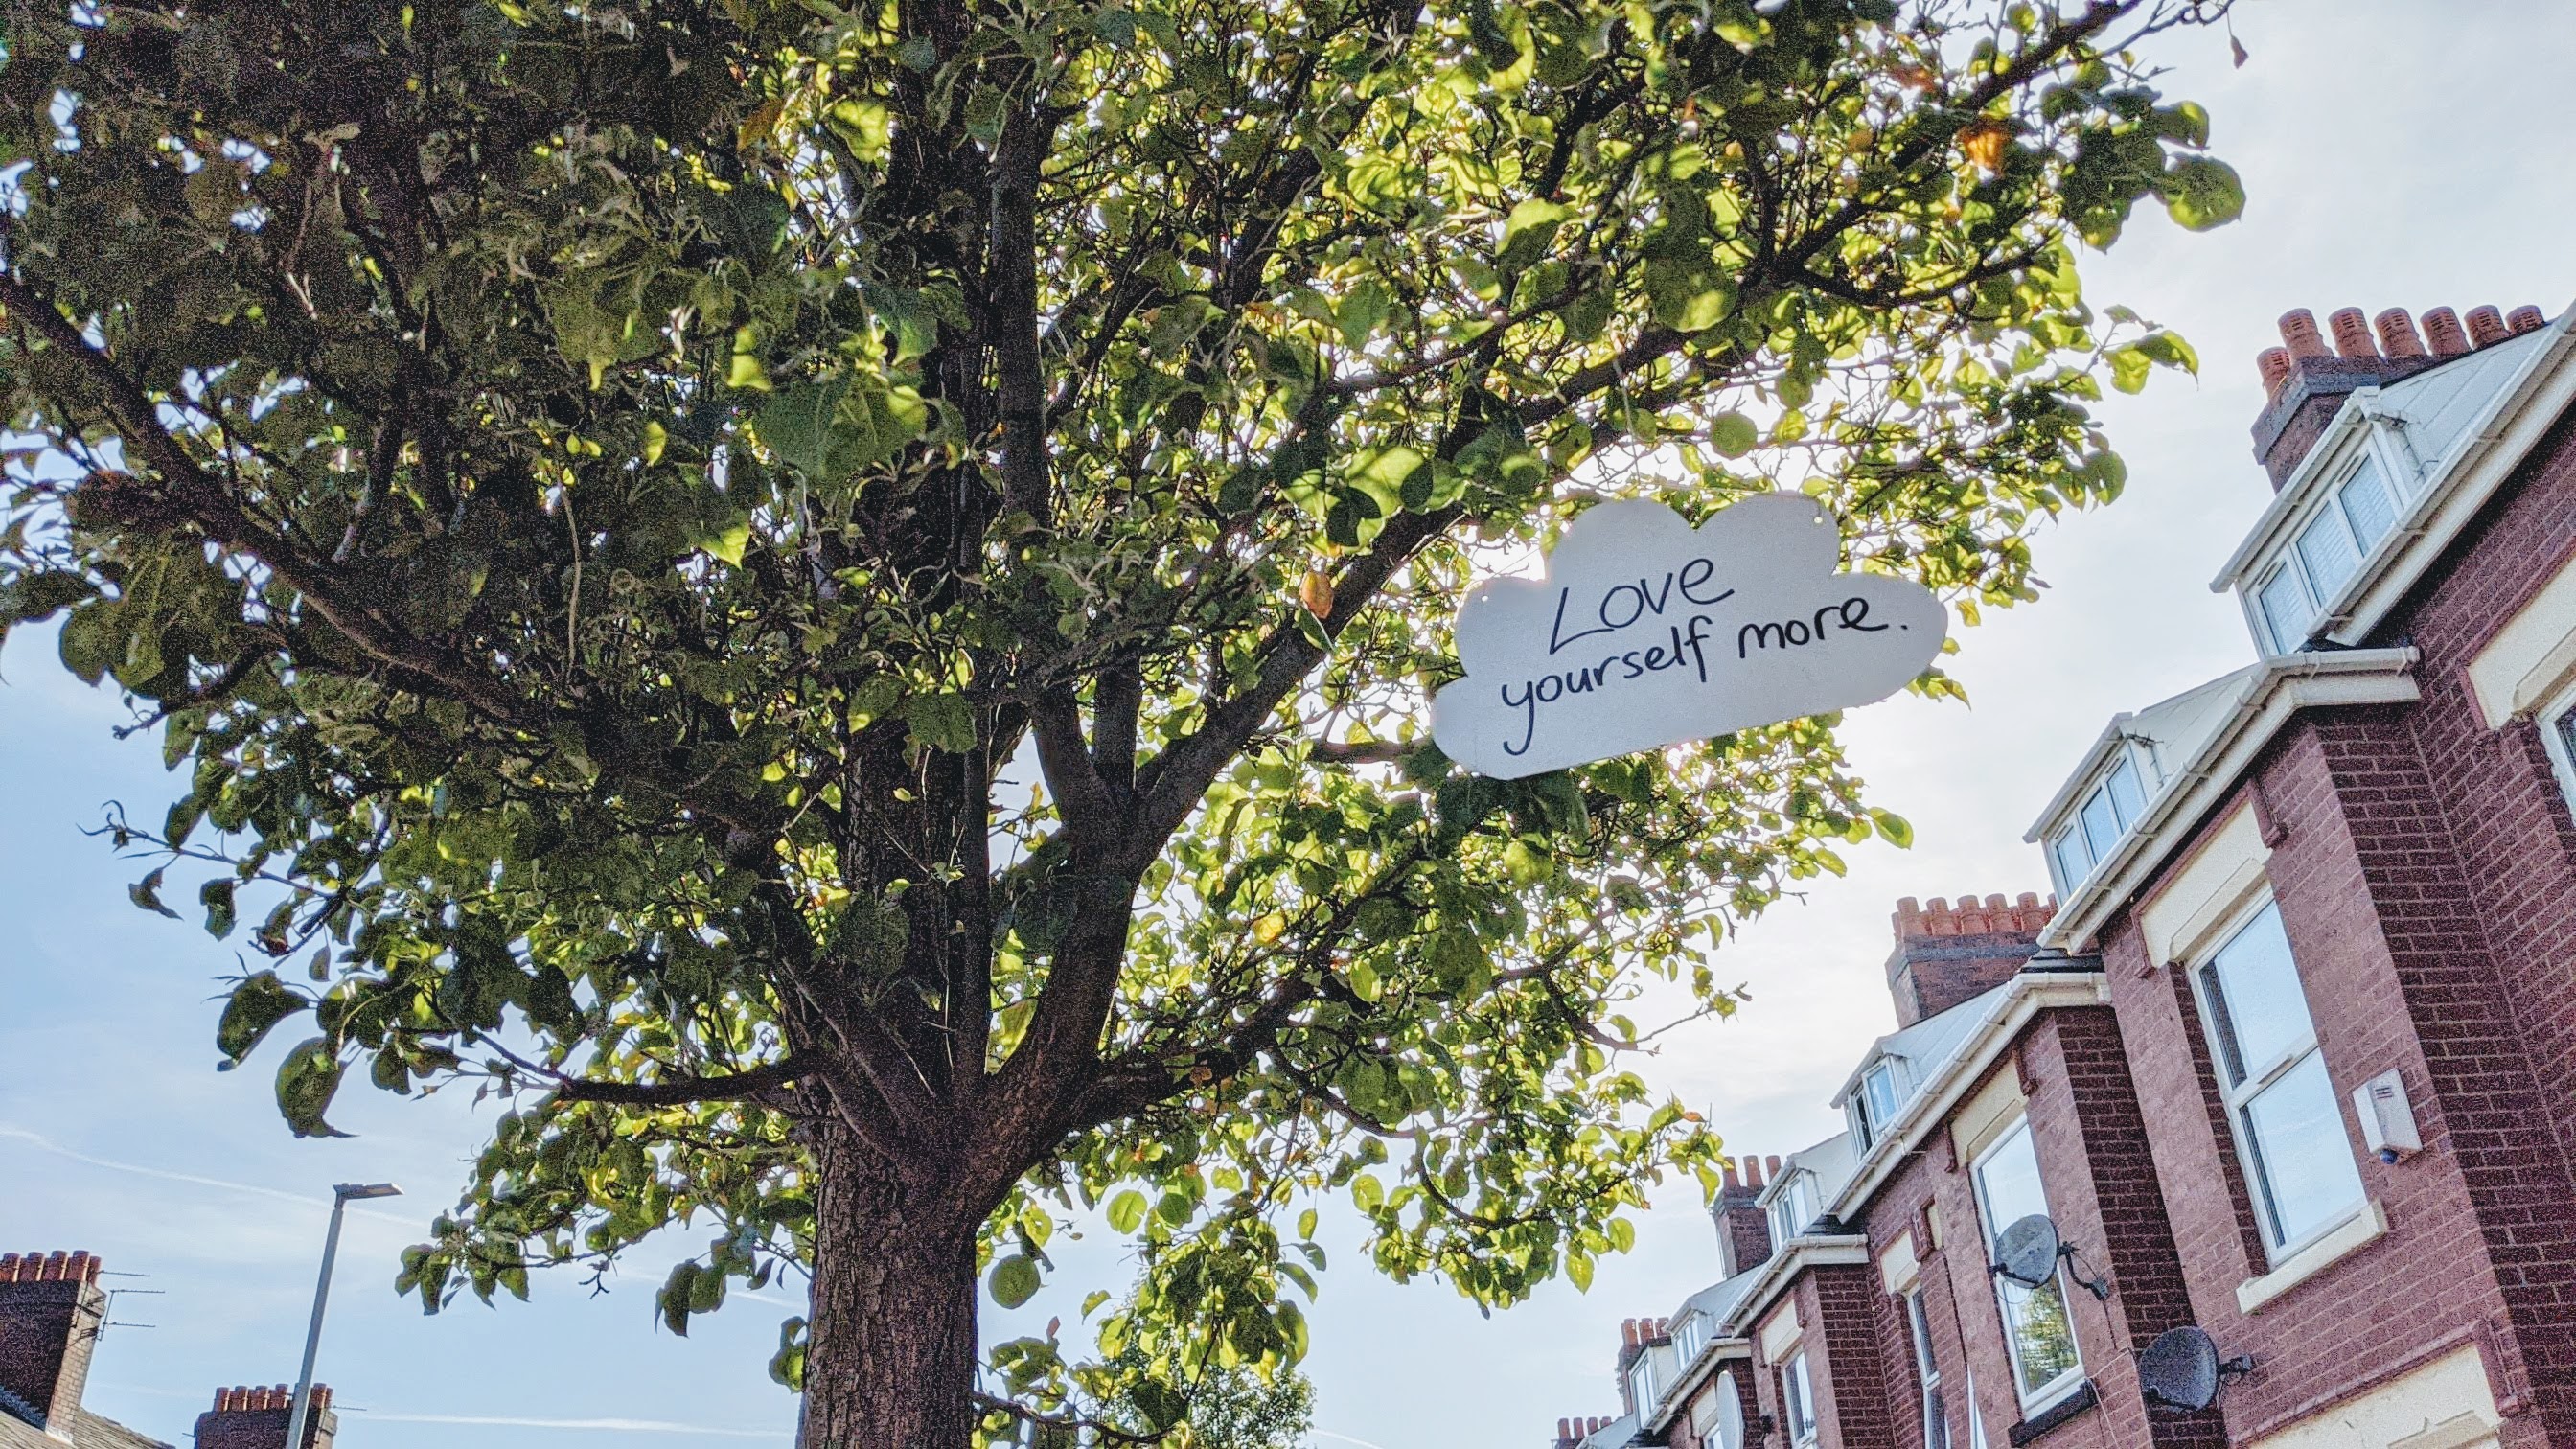 Love
yourself more.